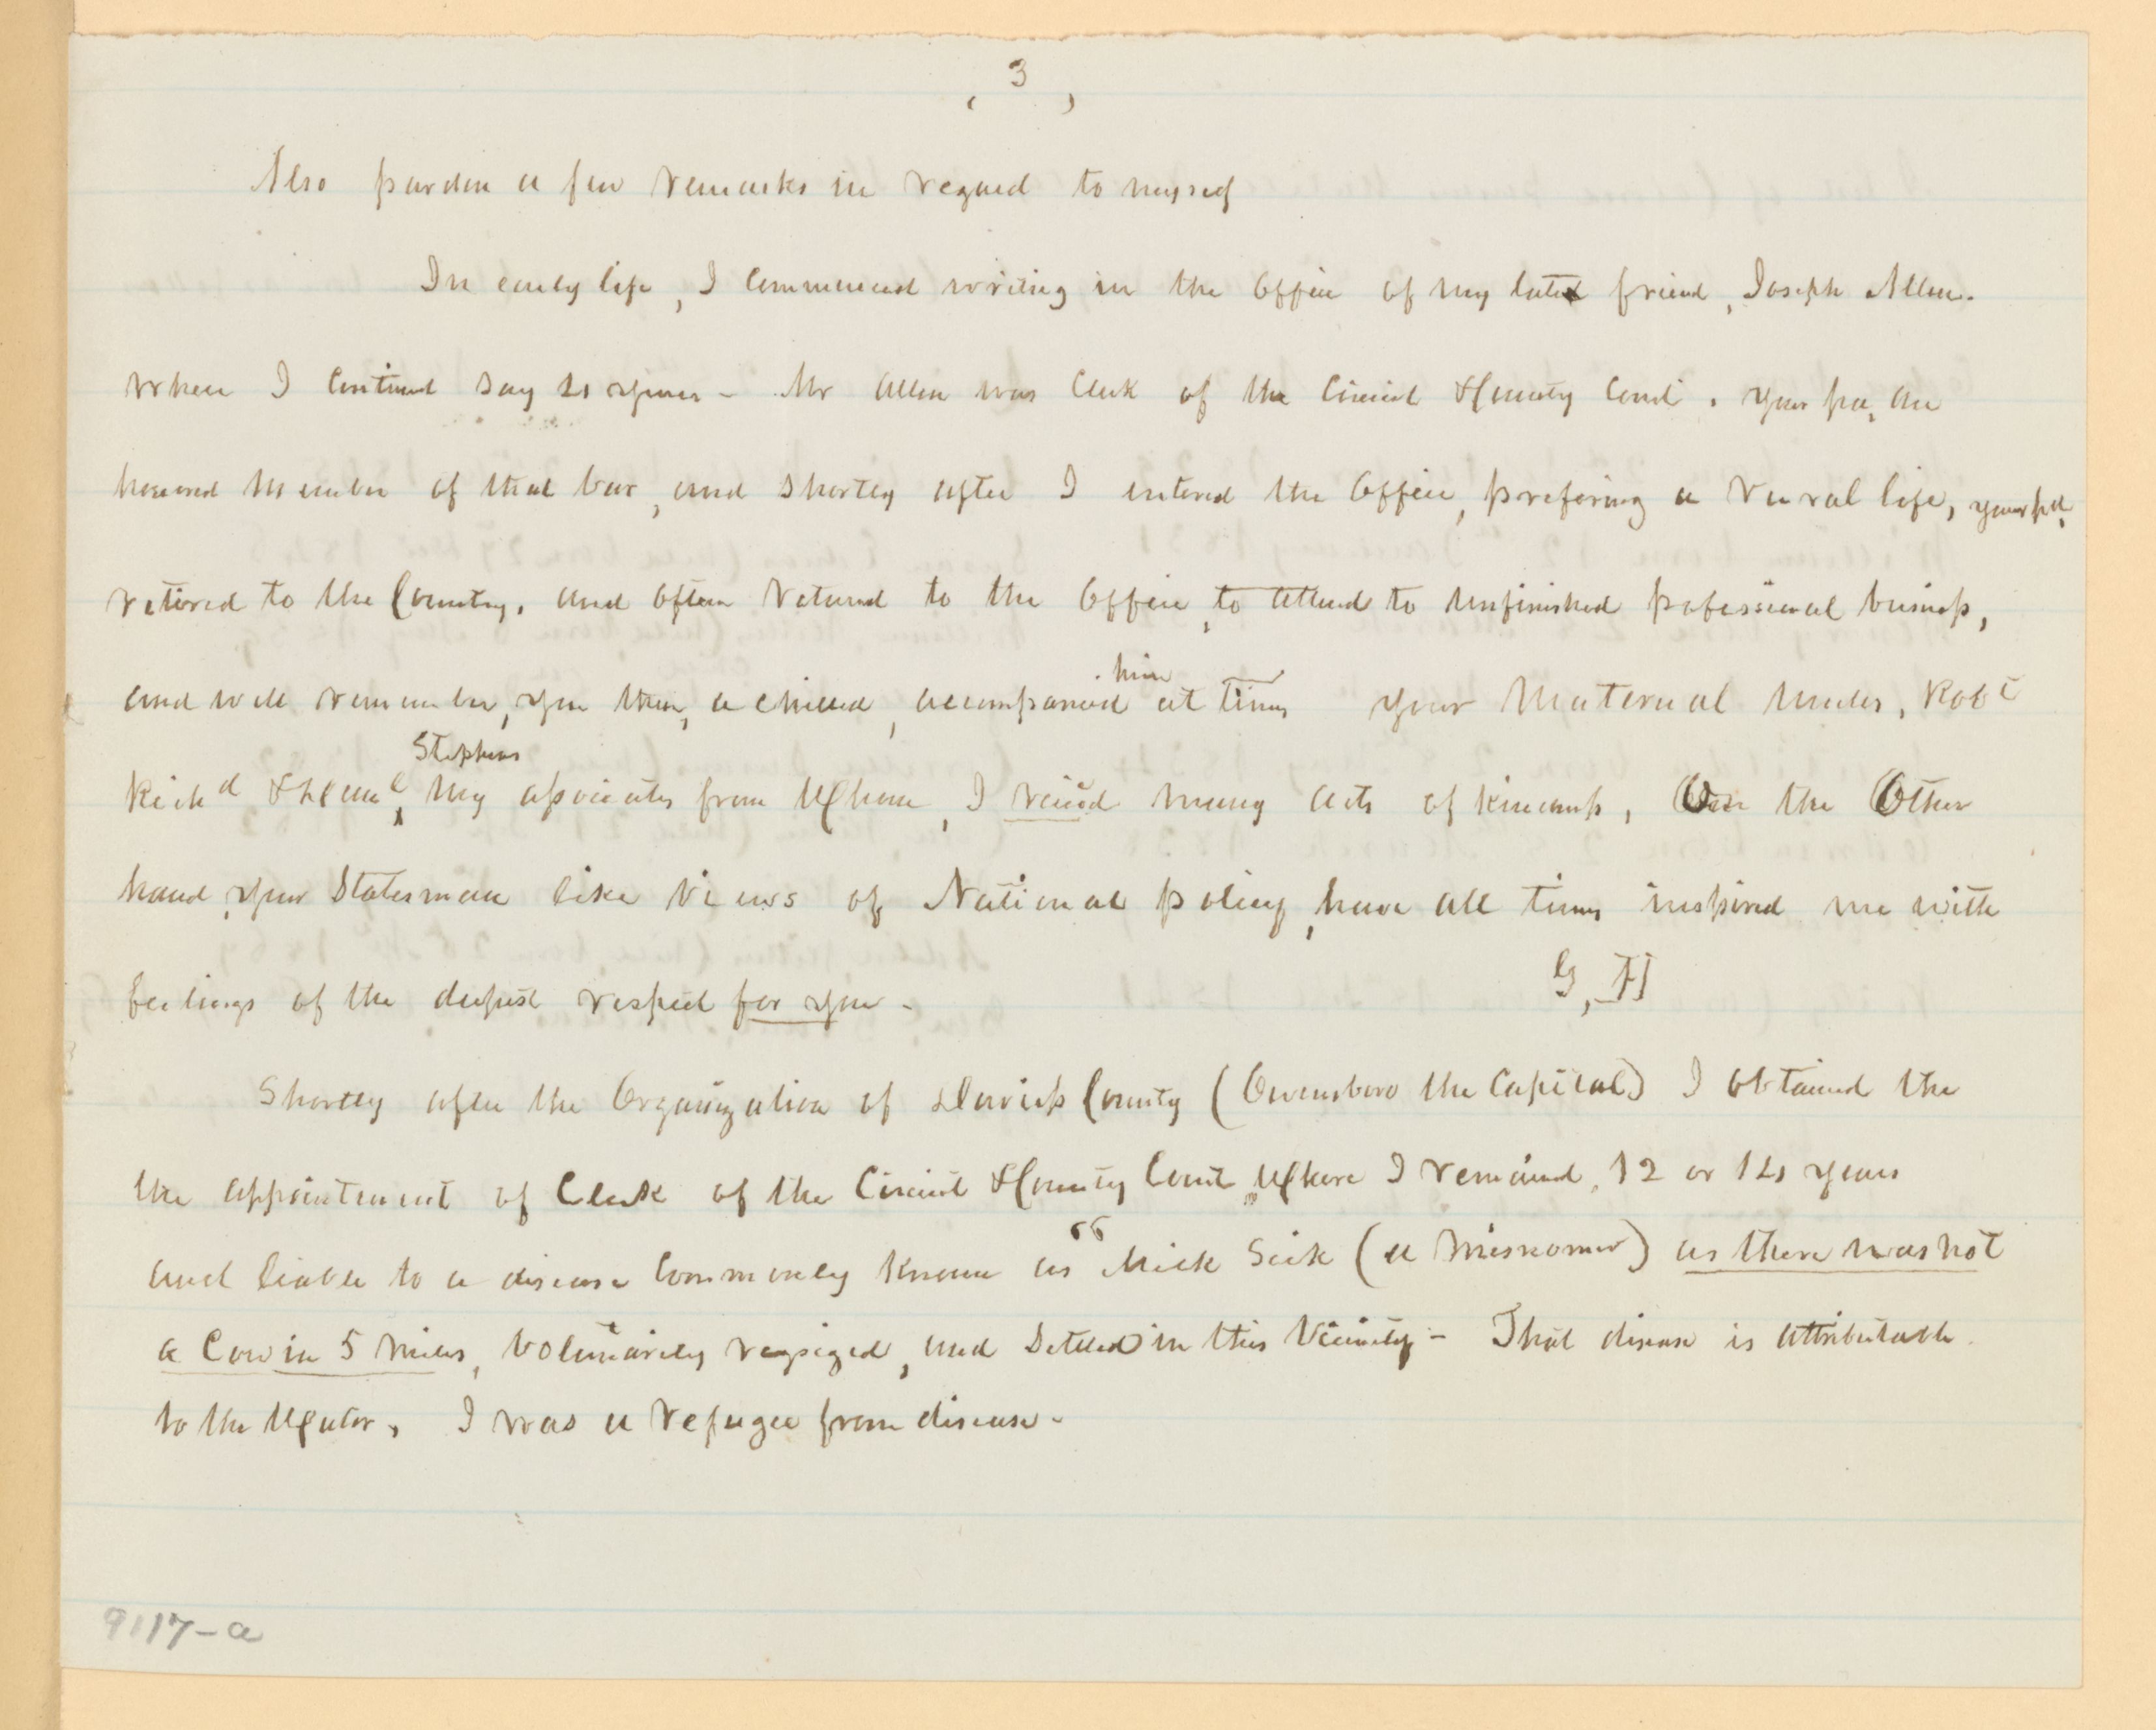 ( 3 )
Also pardon a few remarks in regard to myself
In early life, I commenced writing in the Office of my late friend, Joseph Allen.
where I continued say years - Mr Allen was Clerk of the Circuit & County Court. your pa, an
honored member of that bar, and shortly after I entered the Office, prefering a rural life, your pa,
retired to the Country. and often returned to the Office, to attend to unfinished pofessional business,
and well remember, you then, a child, accompanied him at times your Maternal Uncles, Robt
Richd & Stephens, my associates from Whom, I many acts of kindness, On the Other
hand, your Statesman like Views of National policy, have all times inspired me with
feelings of the deepest respect for you - G, H
Shortly after the Organization of Daviess County (Owensboro the Capital) I obtained the
the appointment of Clerk of the Circuit & County Court, Where I remained, 12 or years
and liable to a disease Commonly known as "Milk Sick (a Misnomer) as there was not
a Cow in 5 Miles, Voluntarily and Settled in this Vicinity - That disease is attributable
to the Water, I was a refugee from disease -
9117-a